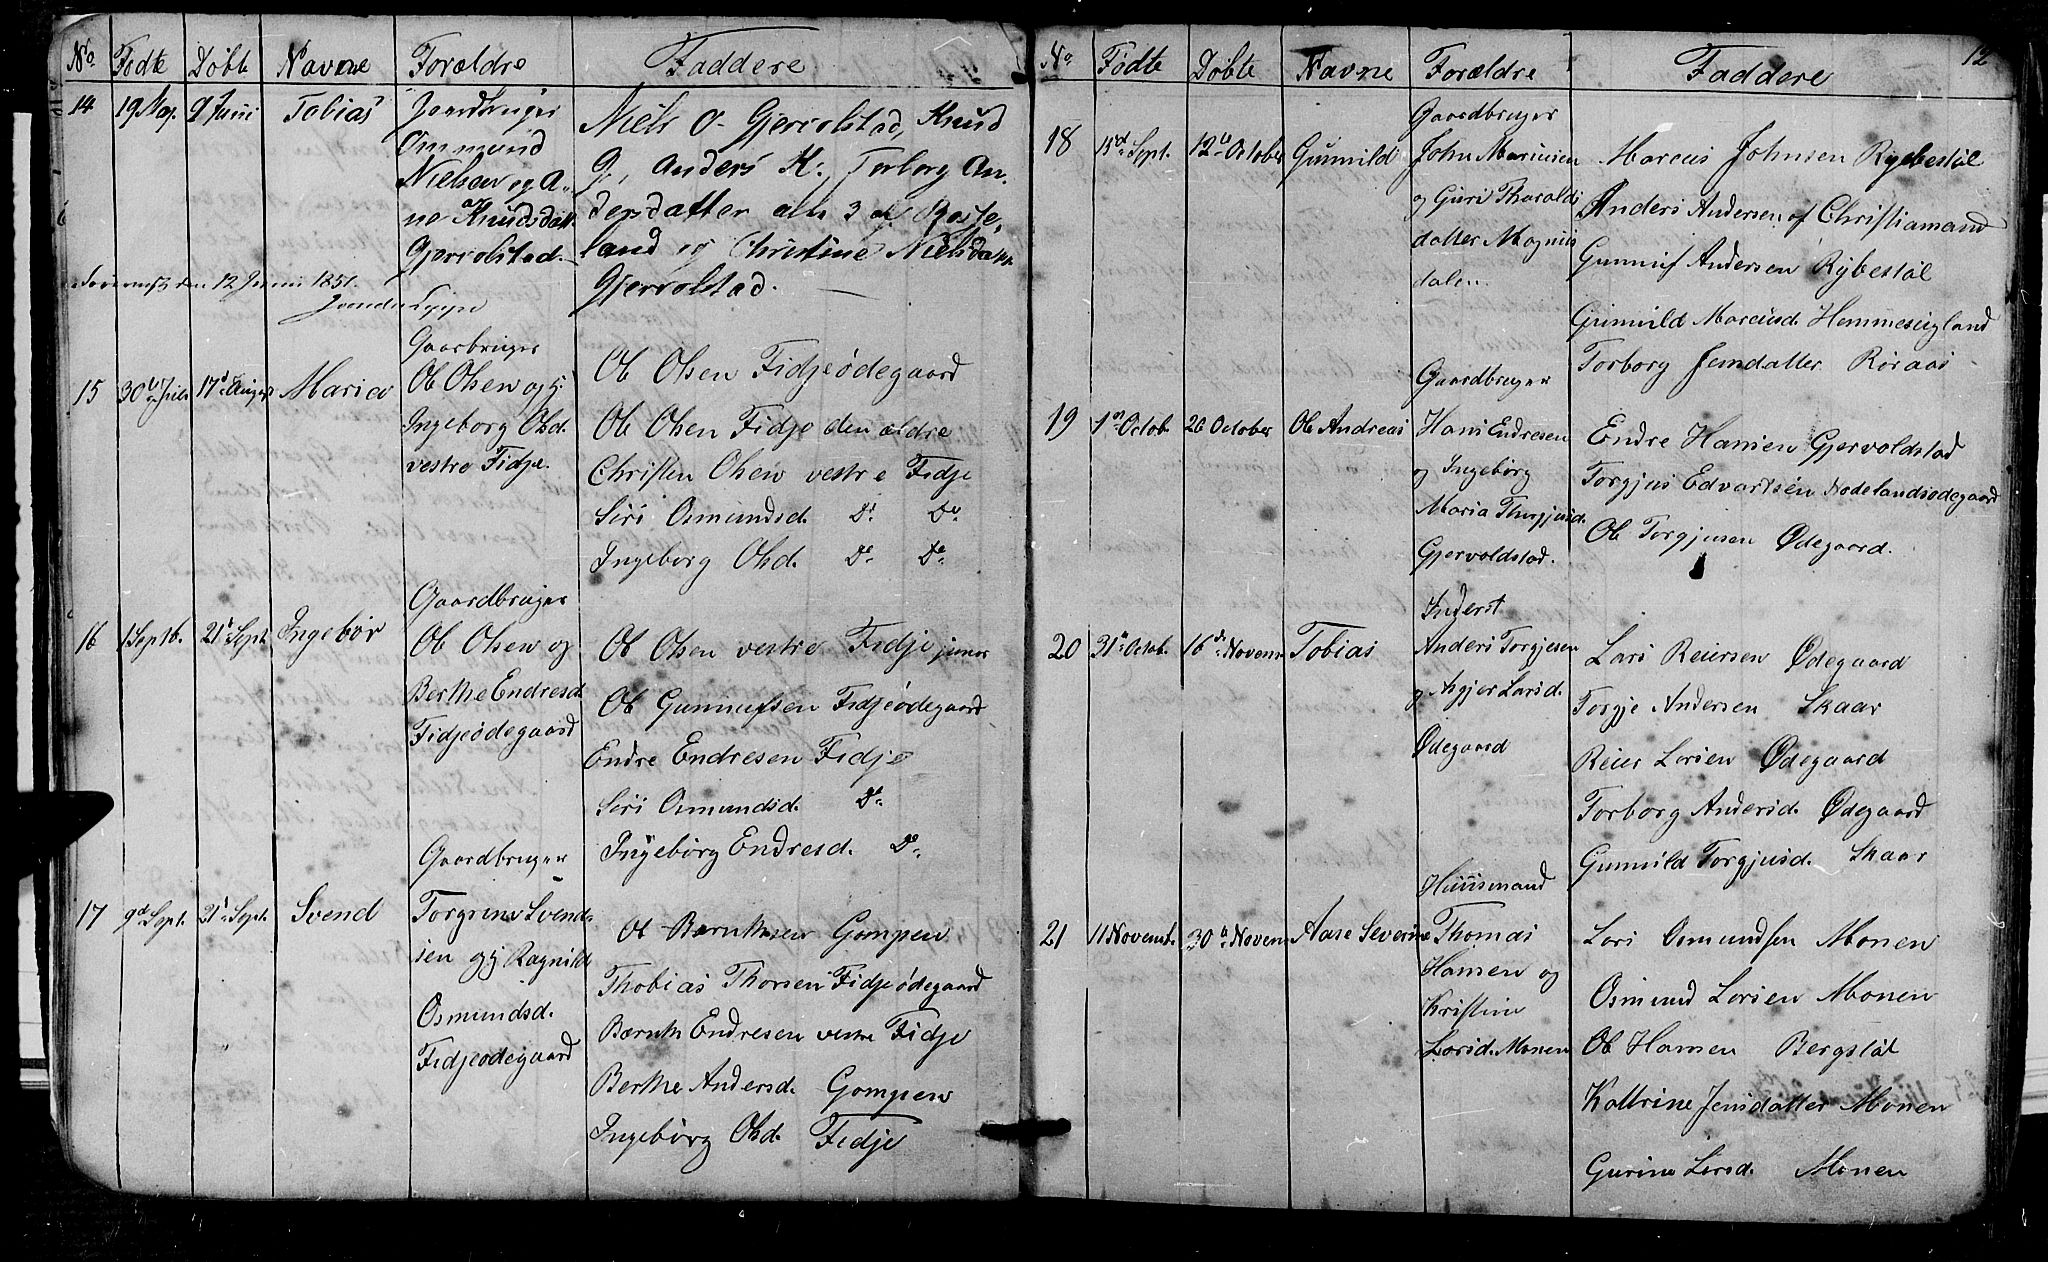 No Fødte Døbte Navne Forældre Faddere
14 19 May. 9 Juni Tobias
Gaardbruger
Ommund
Nielsen og A-
ne Knudsdatt.
Gjervolstad.
Niels O. Gjervolstad, Knud
G., Anders K., Torborg An-
dersdatter alle 3 af
land og Christine Nielsdatter
Gjervolstad.
den 12 Juni 1851.
15 30te Juli 17d August Maria
Gaarbruger
Ole Olsen og
Ingeborg Olsd.
vestre Fidje.
Ole Olsen Fidjeødegaard
Ole Olsen Fidje den ældre
Christen Olsen vestre Fidje
Siri Osmundsd. Do Do
Ingeborg Olsd. Do Do
16 1 Septb. 21d Sept. Ingebør
Gaardbruger
Ole Olsen og
Berthe Endresd.
Fidjeødegaard
Ole Olsen vestre Fidje junior
Ole Gunnufsen Fidjeødegaard
Endre Endresen Fidje
Siri Osmundsd. Do
Ingebørg Endresd. Do
17 9d Sept. 21d Sept. Svend
Gaardbruger
Torgrens Svend-
sen og Ragnild
Osmundsd.
Fidjeødegaard
Ole Berntsen Gompen
Thobias Thorsen Fidjeødegaard
Bernt Endresen vestre Fidje
Berthe Andersd. Gompen
Ingebørg Olsd. Fidje
No Fødte Døbte Navne Forældre Faddere 12
18 15d Sept. 12te October Gunnild
Gaardbruger
John Marcusen
og Guri Tharalds
datter Magnus
dalen.
Marcus Johnsen Rybestøl
Anders Andersen af Christiansand
Gunnuf Andersen Rybestøl
Gunnild Marcusd. Hemmesigland
Torborg Jensdatter Røraas
19 1 Octob. 26 October Ole Andreas
Gaardbruger
Hans Endresen
og Ingebørg
Maria Thorgjusd.
Gjervoldstad.
Endre Hansen Gjervoldstad
Torgjus Edvartsen Nodelandsødegaard
Ole Torgjusen Ødegaard.
20 31te Octob. 16de Novem Tobias
Inderst
Anders Torgjesen
og Asgjer Larsd.
Ødegaard
Lars Reiersen Ødegaard
Torgje Andersen Skaar
Reier Larsen Ødegaard
Torborg Andersd. Ødegaard
Gunnild Torgjusd. Skaar
21 11 Novemb. 30te Novem Aase Severine
Huusmand
Thomas
Hansen og
Kristine
Larsd. Monen
Lars Osmundsen Monen
Osmund Larsen Monen
Ole Hansen Bergstøl
Kattrine Jensdatter Monen
Gurine Larsd. Monen